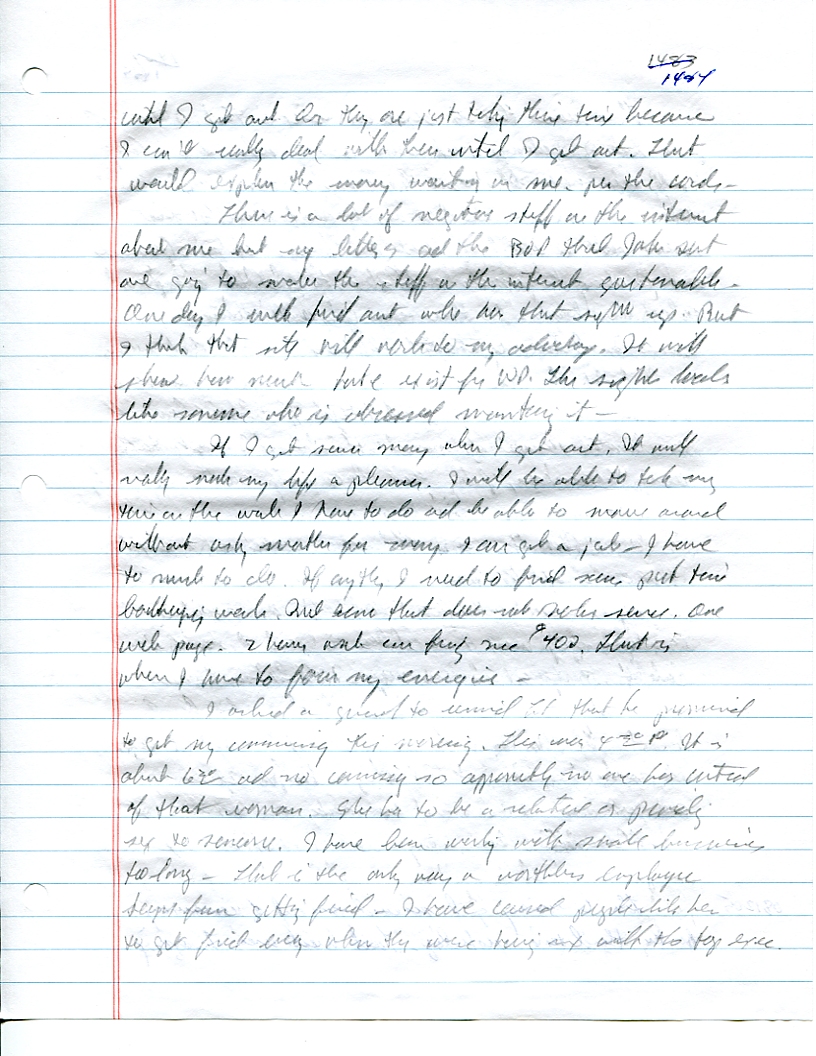 1483
1484
until I get out. Or they are just taking their time because
I can't really deal with them until I get out. That
would explain the money waiting on me. per the cards-
There is a lot of negative stuff on the internet
about me but my letters and the BOP that Jake sent
are going to make the stuff on the internet questionable.
One day I will find out who has that up. But
I think that site will to my advantage. It will
show how much hate exist for WP. This looks
like someone who is obsessed it -
If I get some money when I get out. It will
really make my life a pleasure. I will be able to take my
time on the work I have to do and be able to move around
without asking mother for money. I can get a job - I have
to much to do. If anything I need to find some part time
work. And even that does not make sense. One
web page 2 hours work can bring me $400. That is
where I have to focus my energies -
I asked a guard to remind Lt that he promised
to get my commissary this morning. This was 4:30 PM. It is
about 6:30 and no commissary so apparently no one has control
of that woman. She has to be a relative or providing
sex to someone. I have been working with small businesses
too long - That is the only way a worthless employee
keeps from getting fired - I have caused people like her
to get fired even when they were having sex with the top exec.